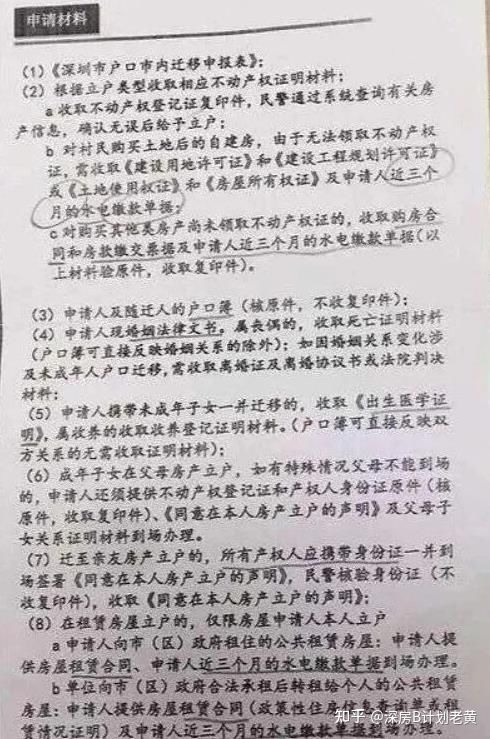 申请材料
(1)《深圳市户口市内迁移申报表》;
(2) 根据立户类型收取相应不动产权证明材料:
a 收取不动产权登记证复印件,民警通过系统查询有关房
产信息,确认无误后给予立户;
b 对村民购买土地后的自建房,由于无法领取不动产权
证,需收取《建设用地许可证》和《建设工程规划许可证》
或《土地使用权证》和《房屋所有权证》及申请人近三个
月的水电缴款单据;
c 对购买其他类房产尚未领取不动产权证的,收取购房合
同和房款缴交票据及申请人近三个月的水电缴款单据(以
上材料验原件,收取复印件)。
(3) 申请人及随迁人的户口簿(核原件,不收复印件);
(4) 申请人现婚姻法律文书。属丧偶的,收取死亡证明材料
(户口簿可直接反映婚姻关系的除外);如因婚姻关系变化涉
及未成年人户口迁移,需收取离婚证及离婚协议书或法院判决
材料;
(5) 申请人携带未成年子女一并迁移的,收取《出生医学证
明》,属收养的收取收养登记证明材料。(户口簿可直接反映双
方关系的无需收取证明材料);
(6) 成年子女在父母房产立户,如有特殊情况父母不能到场
的,申请人还须提供不动产权登记证和产权人身份证原件(核
原件,收取复印件)、《同意在本人房产立户的声明》及父母子
女关系证明材料到场办理。
(7) 迁至亲友房产立户的,所有产权人应携带身份证一并到
场签署《同意在本人房产立户的声明》,民警核验身份证(不
收复印件),收取《同意在本人房产立户的声明》;
(8) 在租赁房屋立户的,仅限房屋申请人本人立户
a 申请人向市(区)政府租住的公共租赁房屋:申请人提
供房屋租赁合同、申请人近三个月的水电缴款单据到场办理。
b 单位向市(区)政府合法承租后转租给个人的公共租赁
房屋:申请人提供房屋租赁合同(政策性住房
赁情况证明)及申请人近三个月的水电缴款单据到场办理。
知乎 @深房B计划老黄